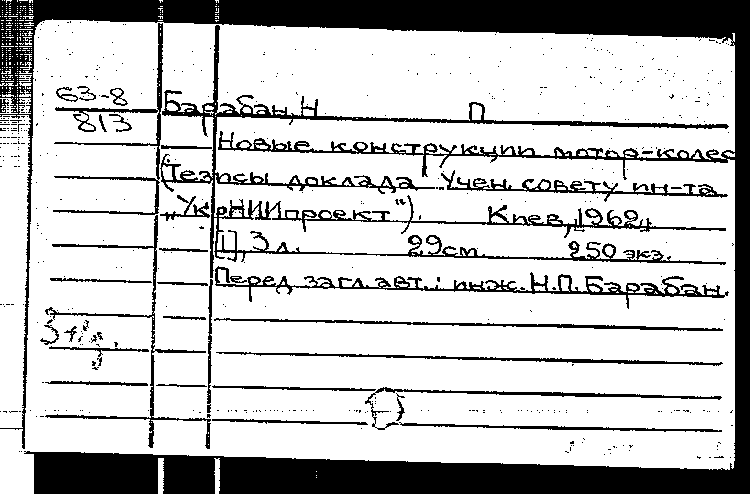 63-8
813
Барабан, Н П
Новые конструкции мотор-колес
(Тезисы доклада Учен. совету ин-та
„УкрНИИпроект"). Киев, 1962,
[1], 3 л. 29см. 250 экз.
Перед загл. авт.: инж. Н.П. Барабан.